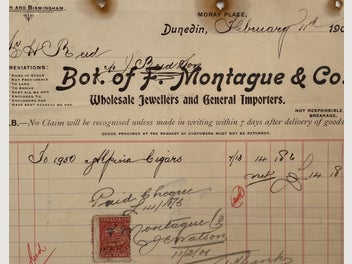 N AND BIRMINGHAM.
MORAY PLACE,
Dunedin, February 11th 190
H Reid
REVIATIONS:
Bot. of F. Montague & Co.
Wholesale Jewellers and General Importers.
NOT RESPONSIBLE
BREAKAGE.
.B.—No Claim will be recognised unless made in writing within 7 days after delivery of goods
GOODS PROCURED BY THE REQUEST OF CUSTOMERS MUST NOT BE RETURNED.
To 1900 Alpina Cigars 14 18 6
nett £ 14 18
Paid Cheque
£14/18/6
Montague & Co
J C Watson
11/2/01
Paid